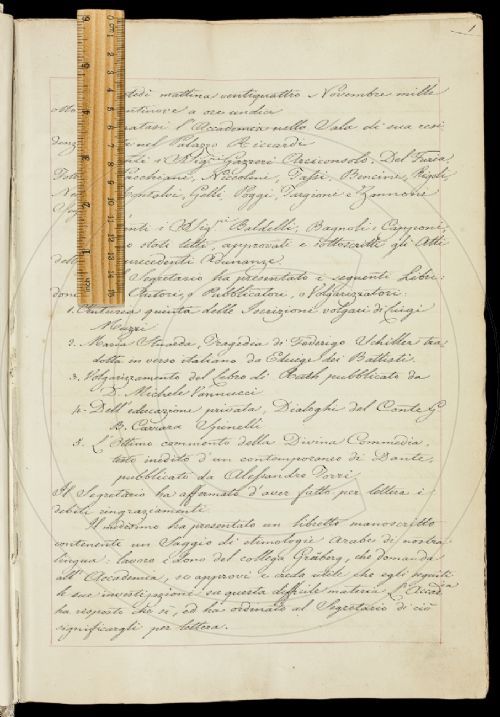 1
tedì mattina ventiquattro Novembre mille
otto ventinove a ore undici
ratasi l'Accademia nella Sala di sua resi
denza nel Palazzo Riccardi
Sig.ri Gazzeri Arciconsolo, Del Furia,
Niccolini, Tassi, Bencini, Rigoli,
Montalvi, Gelli, Poggi, Targioni e Zannoni
i Sig.ri Baldelli, Bagnoli e Capponi,
stati letti, approvati e sottoscritti gli Atti
delle precedenti Adunanze.
Segretario ha presentato i seguenti Libri
Autori, o Pubblicatori, o Volgarizzatori:
1. Centuria quinta delle Iscrizioni volgari di Luigi
Muzzi
2. Maria Stuarda, Tragedia di Federigo Schiller tra
dotta in verso italiano da Edvige dei Battisti.
3. Volgarizzamento del libro di Ruth pubblicato da
D. Michele Vannucci
4. Dell'educazione privata, Dialoghi del Conte G
B. Carrara Spinelli
5. L'Ottimo commento della Divina Commedia,
testo inedito d'un contemporaneo di Dante,
pubblicato da Alessandro Torri
Il Segretario ha affermato d'aver fatti per lettera i
debiti ringraziamenti
Il medesimo ha presentato un libretto manoscritto
contenente un Saggio di etimologie Arabe di nostra
lingua: lavoro e dono del collega Gråberg, che domanda
all'Accademia, se approvi e creda utile che egli seguiti
le sue investigazioni su questa difficile materia. L'Accad.ia
ha risposto che sì, ed ha ordinato al Segretario di ciò
significargli per lettera.